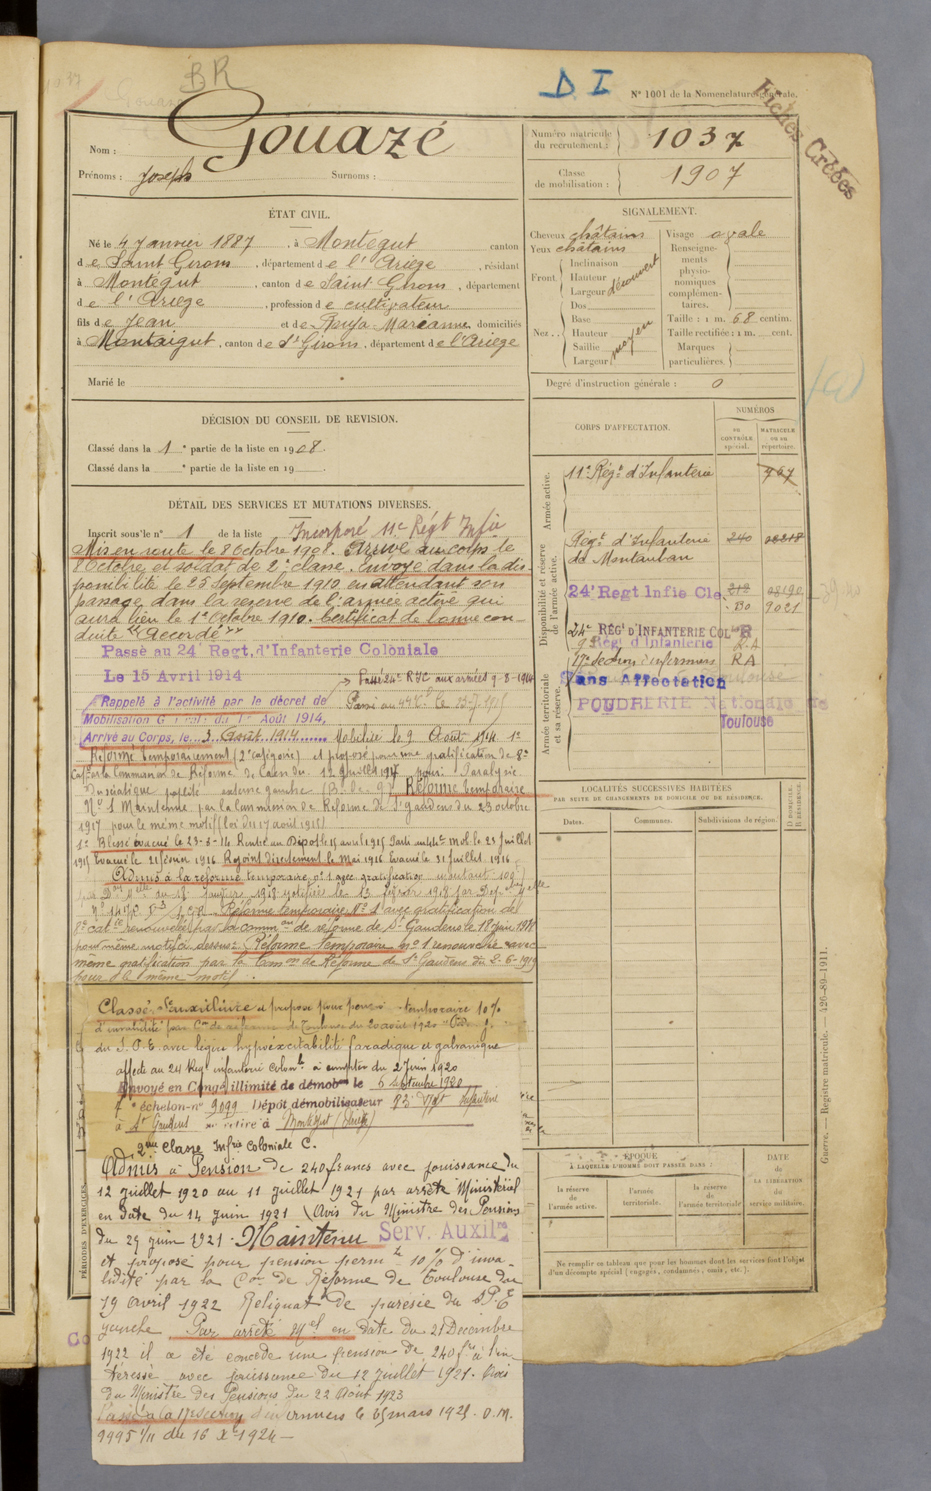 BR
D I
N° 1001 de la Nomenclature générale.
Fiches Créées
Nom : Gouazé
Prénoms : Joseph Surnoms :
Numéro matricule du recrutement : 1037
Classe de mobilisation : 1907
ÉTAT CIVIL.
Né le 4 Janvier 1887, à Montégut canton
de Saint Girons, département de l'Ariège, résidant
à Montégut, canton de Saint Girons, département
de l'Ariège, profession de cultivateur
fils de Jean et de Marianne domiciliés
à Montaigut, canton de St Girons, département de l'Ariège
Marié le
SIGNALEMENT.
Cheveux châtains
Yeux châtains
Front Inclinaison
Hauteur
Largeur
découvert
Nez Dos
Base
Hauteur
Saillie
Largeur
moyen
Visage ovale
Renseignements physionomiques complémentaires.
Taille : 1 m. 68 centim.
Taille rectifiée : 1 m. cent.
Marques particulières.
Degré d'instruction générale : 0
DÉCISION DU CONSEIL DE REVISION.
Classé dans la 1e partie de la liste en 1908.
Classé dans la e partie de la liste en 19
DÉTAIL DES SERVICES ET MUTATIONS DIVERSES.
Inscrit sous le n° 1 de la liste Incorporé 11e Régt Infie
Mis en route le 8 Octobre 1908. Arrivé au corps le
8 Octobre et soldat de 2e classe. Envoyé dans la dis-
ponibilité le 25 Septembre 1910 en attendant son
passage dans la réserve de l'armée active qui
aura lieu le 1e Octobre 1910. Certificat de bonne con-
duite "Accordé"
Passé au 24 Regt, d'Infanterie Coloniale
Le 15 Avril 1914
Passé 24e RIC aux armées 9-8-1914
Rappelé à l'activité par le décret de
Mobilisation Générale du 1er Août 1914,
Arrivé au Corps, le 3 Août 1914 Mobilisé le 9 Août 1914
Réformé temporairement (2e catégorie) et proposé pour une gratification de 8e
Catie par la Commission de Réforme de Caen du 12 Juillet 1917 pour : Paralysie
du sciatique poplité externe gauche Réforme temporaire
N° 1 Maintenue par la Commission de Réforme de St Gaudens du 23 octobre
1917 pour le même motif (loi du 17 août 1915)
1° Blessé évacué le 23-8-14 Rentré au Dépôt le 15 avril 1915 23 Juillet
1915 Evacué le 21 février 1916 Rejoint directement le Mai 1916 Evacué le 31 Juillet 1916
Admis à la réforme temporaire n° 1 avec gratification
Réforme temporaire N° 1 avec gratification de
8e catie renouvelée par la comm on de réforme de St Gaudens le 18 juin 1918
pour même motif ci dessus. Réforme temporaire n° 1 renouvelée avec
même gratification par la Common de Réforme de St Gaudens du 2-6-1919
pour le même motif
Classé Sce auxiliaire et proposé pour pension temporaire 10%
d'invalidité par Con de réforme de Toulouse du 20 août 1920
du S.P.E. avec légère hypoexcitabilité faradique et galvanique
affecté au 24 Reg infanterie Colonle à compter du 2 Juin 1920
Envoyé en Congé illimité de démobon le 6 Septembre 1920
échelon n° 9099 Dépôt démobilisateur 83 Rgt Infanterie
à St Gaudens se retire à Montégut (Ariège)
2me Classe Infrie Coloniale C.
Admis à Pension de 240 francs avec jouissance du
12 juillet 1920 au 11 juillet 1921 par arrêté Ministériel
en date du 14 Juin 1921 (Avis du Ministre des Pensions
du 29 juin 1921. Maintenu Serv. Auxilre
et proposé pour pension permte 10% d'inva-
lidité par la Con de Réforme de Toulouse du
19 Avril 1922 Reliquat de parésie du SPE
gauche Par arrêté Mel en date du 21 Décembre
1922 il a été concédé une pension de 240 frs à l'in-
téressé avec jouissance du 12 Juillet 1921. Avis
du Ministre des Pensions du 22 Août 1923
Passé à la 17e section d'infirmiers le 25 mars 1925. O.M.
9995 1/11 du 16 Xbre 1924
PÉRIODES D'EXERCICES.
CORPS D'AFFECTATION.
NUMÉROS
AU CONTRÔLE spécial.
MATRICULE OU AU répertoire.
Armée active.
11e Régt d'Infanterie
Disponibilité et réserve de l'armée active.
Régt d'Infanterie de Montauban 240
24e Regt Infie Cle
Bo 9021
24e RÉGt D'INFANTERIE COLle R
Régt d'Infanterie R.A
Armée territoriale et sa réserve.
17e section d'infirmiers RA
Sans Affectation
POUDRERIE Nationale de
Toulouse
LOCALITÉS SUCCESSIVES HABITÉES
PAR SUITE DE CHANGEMENTS DE DOMICILE OU DE RÉSIDENCE.
Dates. Communes. Subdivisions de région.
D. DOMICILE. R. RÉSIDENCE.
ÉPOQUE
À LAQUELLE L'HOMME DOIT PASSER DANS :
DATE de LA LIBÉRATION du service militaire.
la réserve de l'armée active.
l'armée territoriale.
la réserve de l'armée territoriale
Ne remplir ce tableau que pour les hommes dont les services font l'objet
d'un décompte spécial (engagés, condamnés, omis, etc.).
Guerre. — Registre matricule. — 426-89-1911.